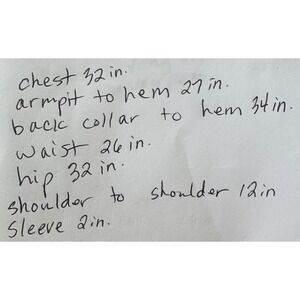 chest 32 in.
armpit to hem 27 in.
back collar to hem 34 in.
waist 26 in.
hip 32 in.
shoulder to shoulder 12 in
Sleeve 2 in.